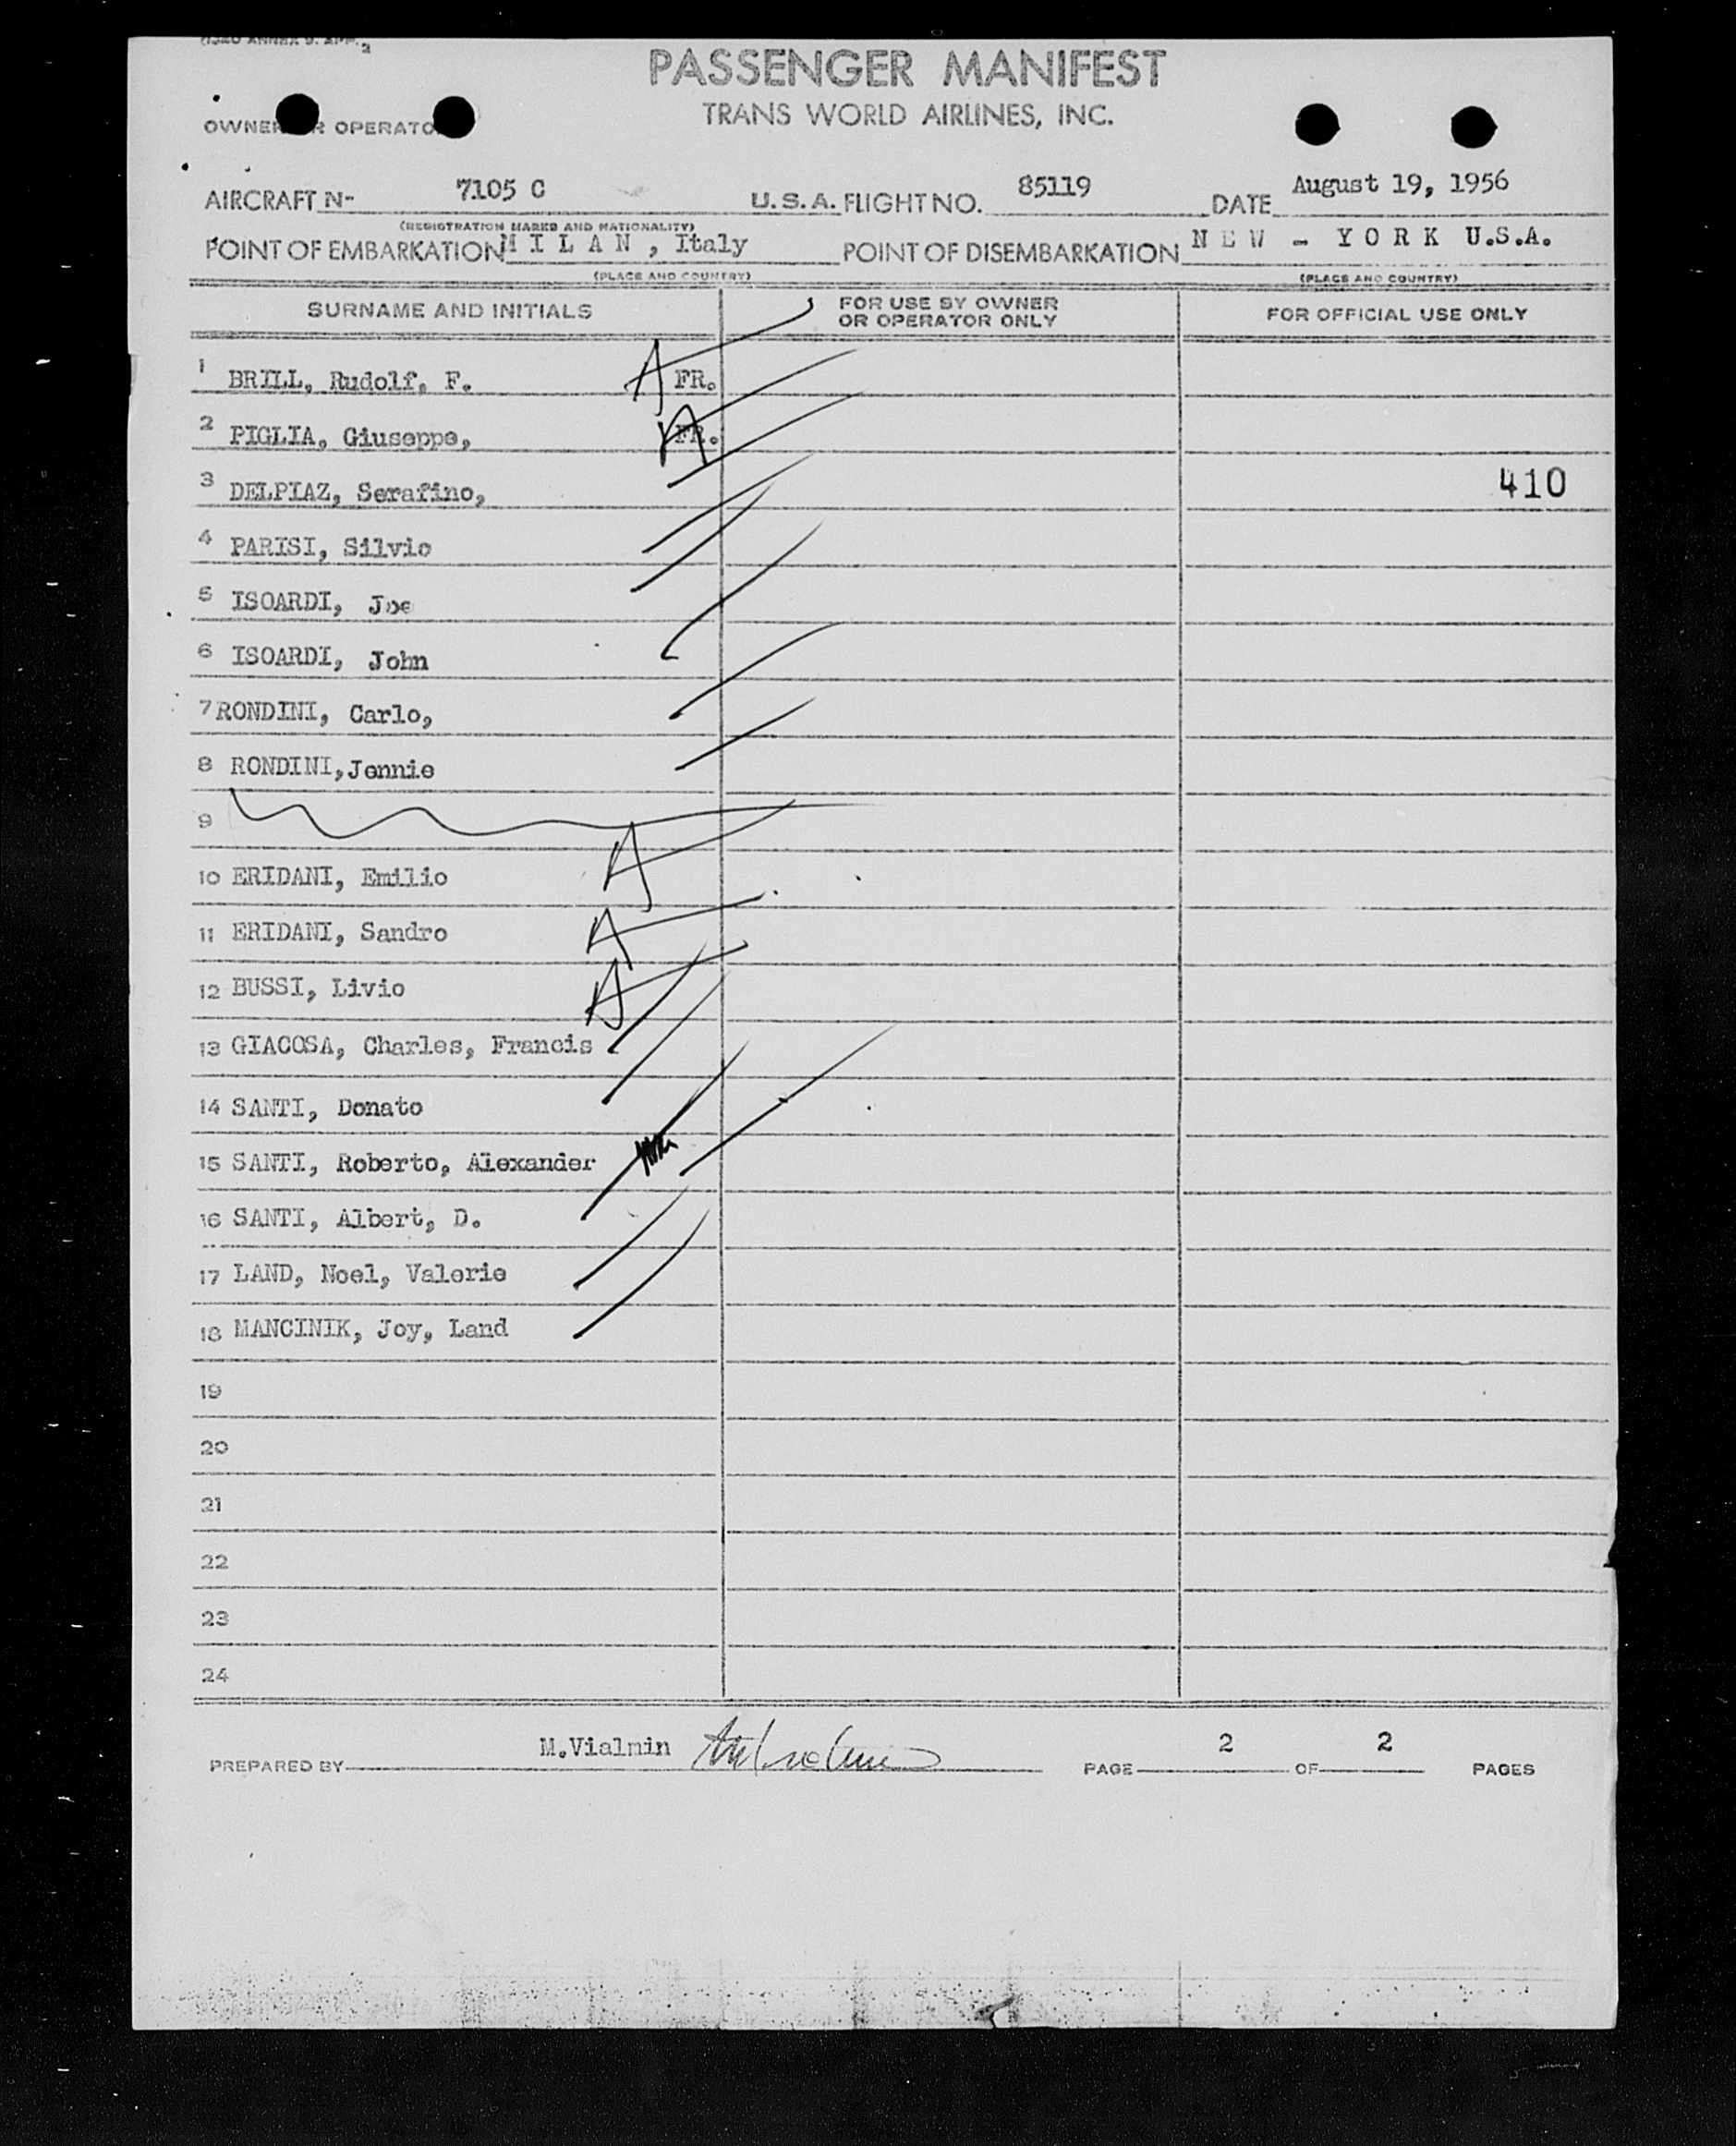 (ICAO ANNEX 9. APP. 2
PASSENGER MANIFEST
TRANS WORLD AIRLINES, INC.
OWNER OR OPERATOR
AIRCRAFT N- 7105 C U.S.A. FLIGHT NO. 85119 DATE August 19, 1956
(REGISTRATION MARKS AND NATIONALITY)
POINT OF EMBARKATION M I L A N , Italy POINT OF DISEMBARKATION N E W - Y O R K U.S.A.
(PLACE AND COUNTRY) (PLACE AND COUNTRY)
SURNAME AND INITIALS FOR USE BY OWNER OR OPERATOR ONLY FOR OFFICIAL USE ONLY
1 BRILL, Rudolf, F. A FR.
2 PIGLIA, Giuseppe, A FR.
3 DELPIAZ, Serafino, 410
4 PARISI, Silvio
5 ISOARDI, Joe
6 ISOARDI, John
7 RONDINI, Carlo,
8 RONDINI, Jennie
9
10 ERIDANI, Emilio A
11 ERIDANI, Sandro A
12 BUSSI, Livio A
13 GIACOSA, Charles, Francis
14 SANTI, Donato
15 SANTI, Roberto, Alexander
16 SANTI, Albert, D.
17 LAND, Noel, Valerie
18 MANCINIK, Joy, Land
19
20
21
22
23
24
PREPARED BY M.Vialmin PAGE 2 OF 2 PAGES